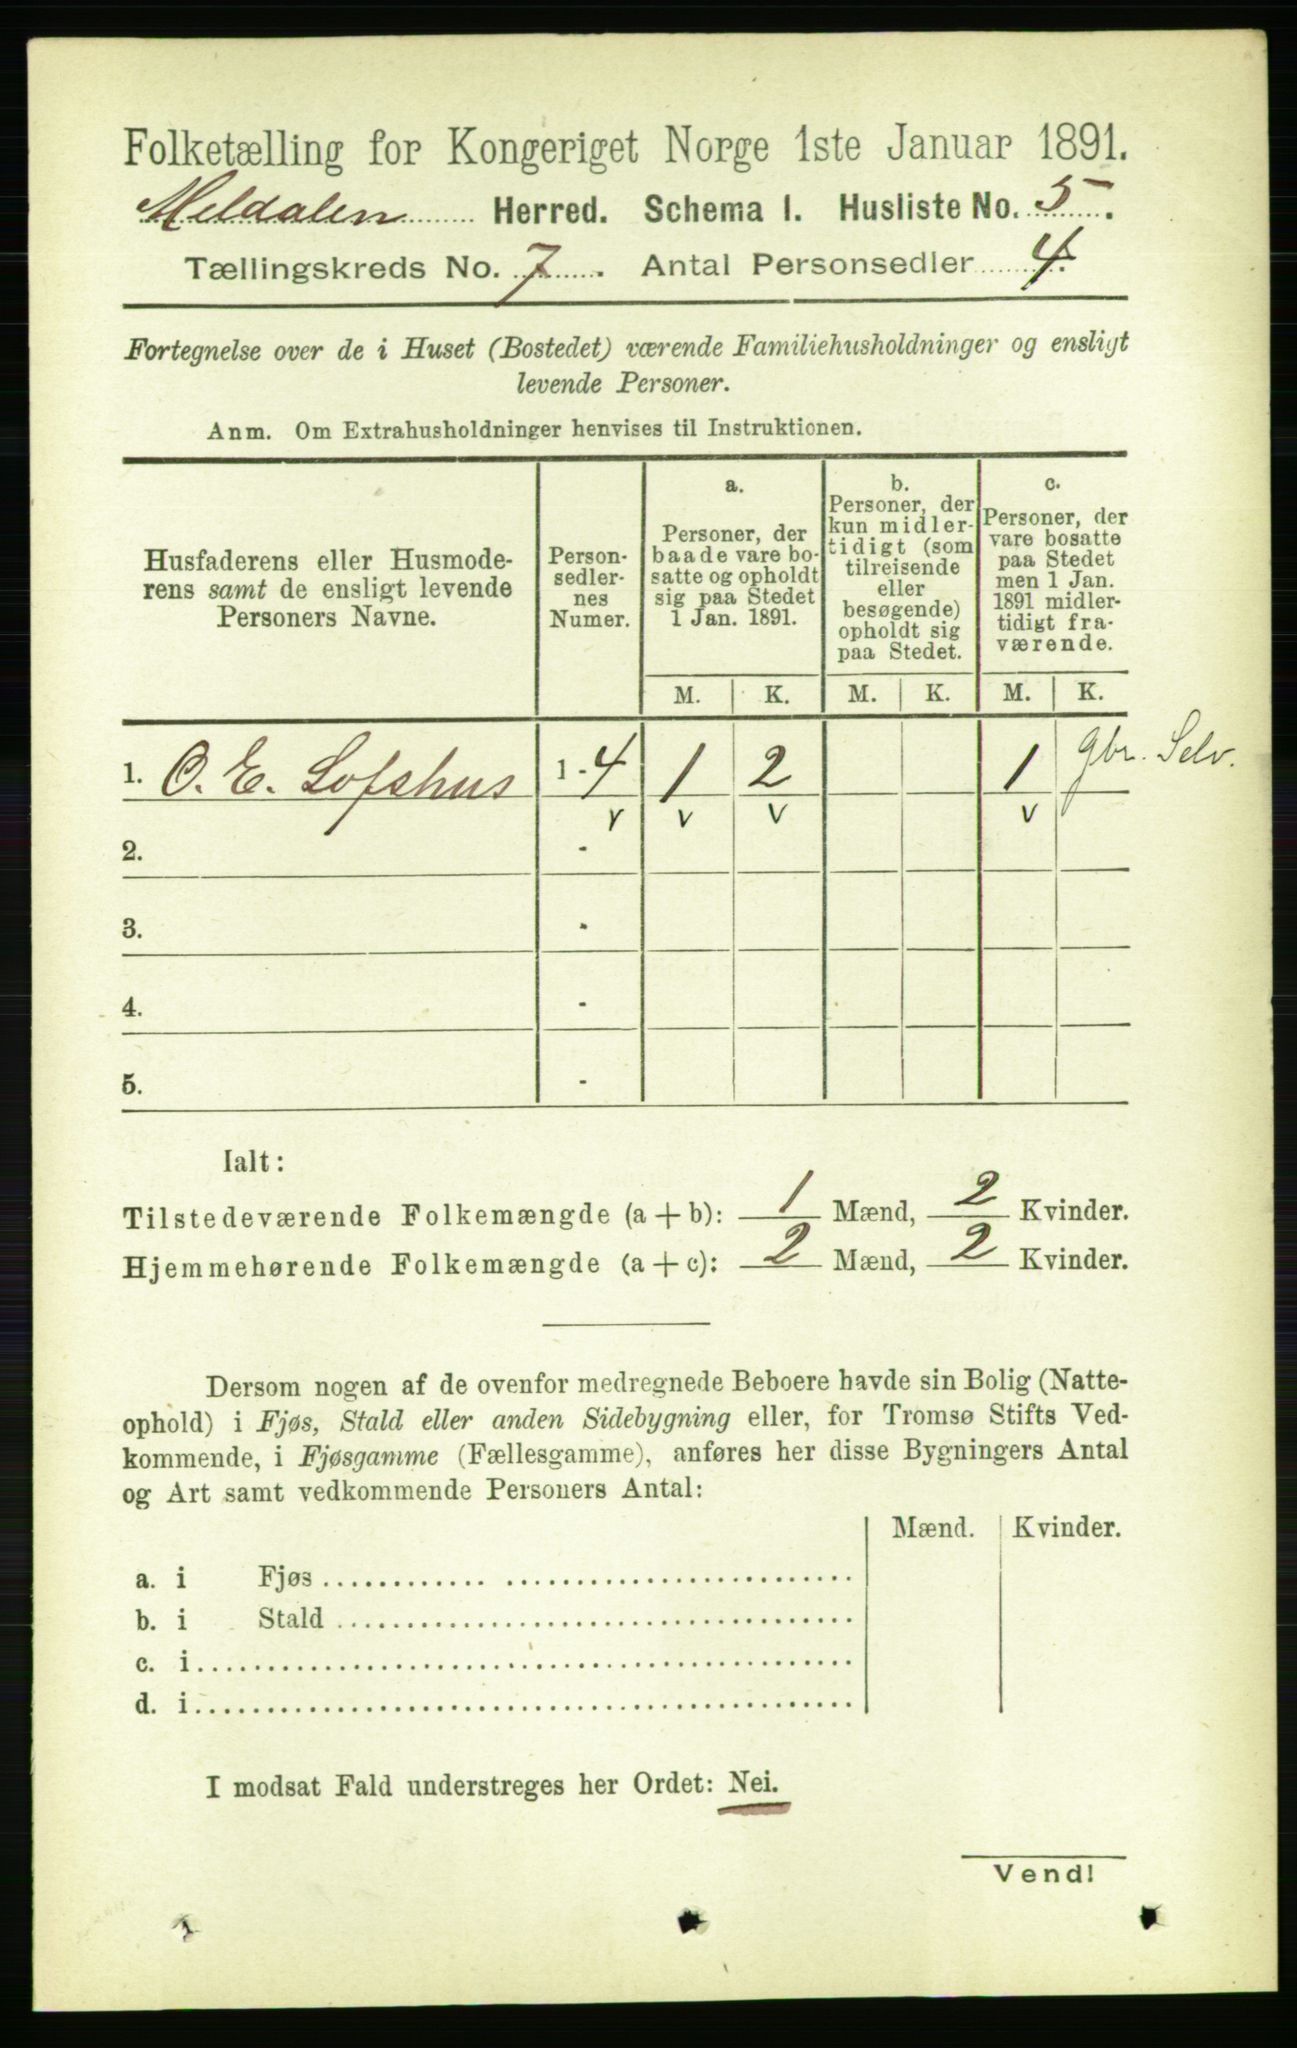 Folketælling for Kongeriget Norge 1ste Januar 1891.
Meldalen Herred. Schema I. Husliste No. 5.
Tællingskreds No. 7. Antal Personsedler 4.
Fortegnelse over de i Huset (Bostedet) værende Familiehusholdninger og ensligt
levende Personer.
Anm. Om Extrahusholdninger henvises til Instruktionen.
Husfaderens eller Husmode-
rens samt de ensligt levende
Personers Navne.
Person-
sedler-
nes
Numer.
a.
Personer, der
baade vare bo-
satte og opholdt
sig paa Stedet
1 Jan. 1891.
b.
Personer, der
kun midler-
tidigt (som
tilreisende
eller
besøgende)
opholdt sig
paa Stedet.
c.
Personer, der
vare bosatte
paa Stedet
men 1 Jan.
1891 midler-
tidigt fra-
værende.
M. K. M. K. M. K.
1. O. E. Lofshus 1 - 4 1 2 1 gbr. Selv.
v v v v
2. -
3. -
4. -
5. -
Ialt:
Tilstedeværende Folkemængde (a + b): 1 Mænd, 2 Kvinder.
Hjemmehørende Folkemængde (a + c): 2 Mænd, 2 Kvinder.
Dersom nogen af de ovenfor medregnede Beboere havde sin Bolig (Natte-
ophold) i Fjøs, Stald eller anden Sidebygning eller, for Tromsø Stifts Ved-
kommende, i Fjøsgamme (Fællesgamme), anføres her disse Bygningers Antal
og Art samt vedkommende Personers Antal:
Mænd. Kvinder.
a. i Fjøs
b. i Stald
c. i
d. i
I modsat Fald understreges her Ordet: Nei.
Vend!